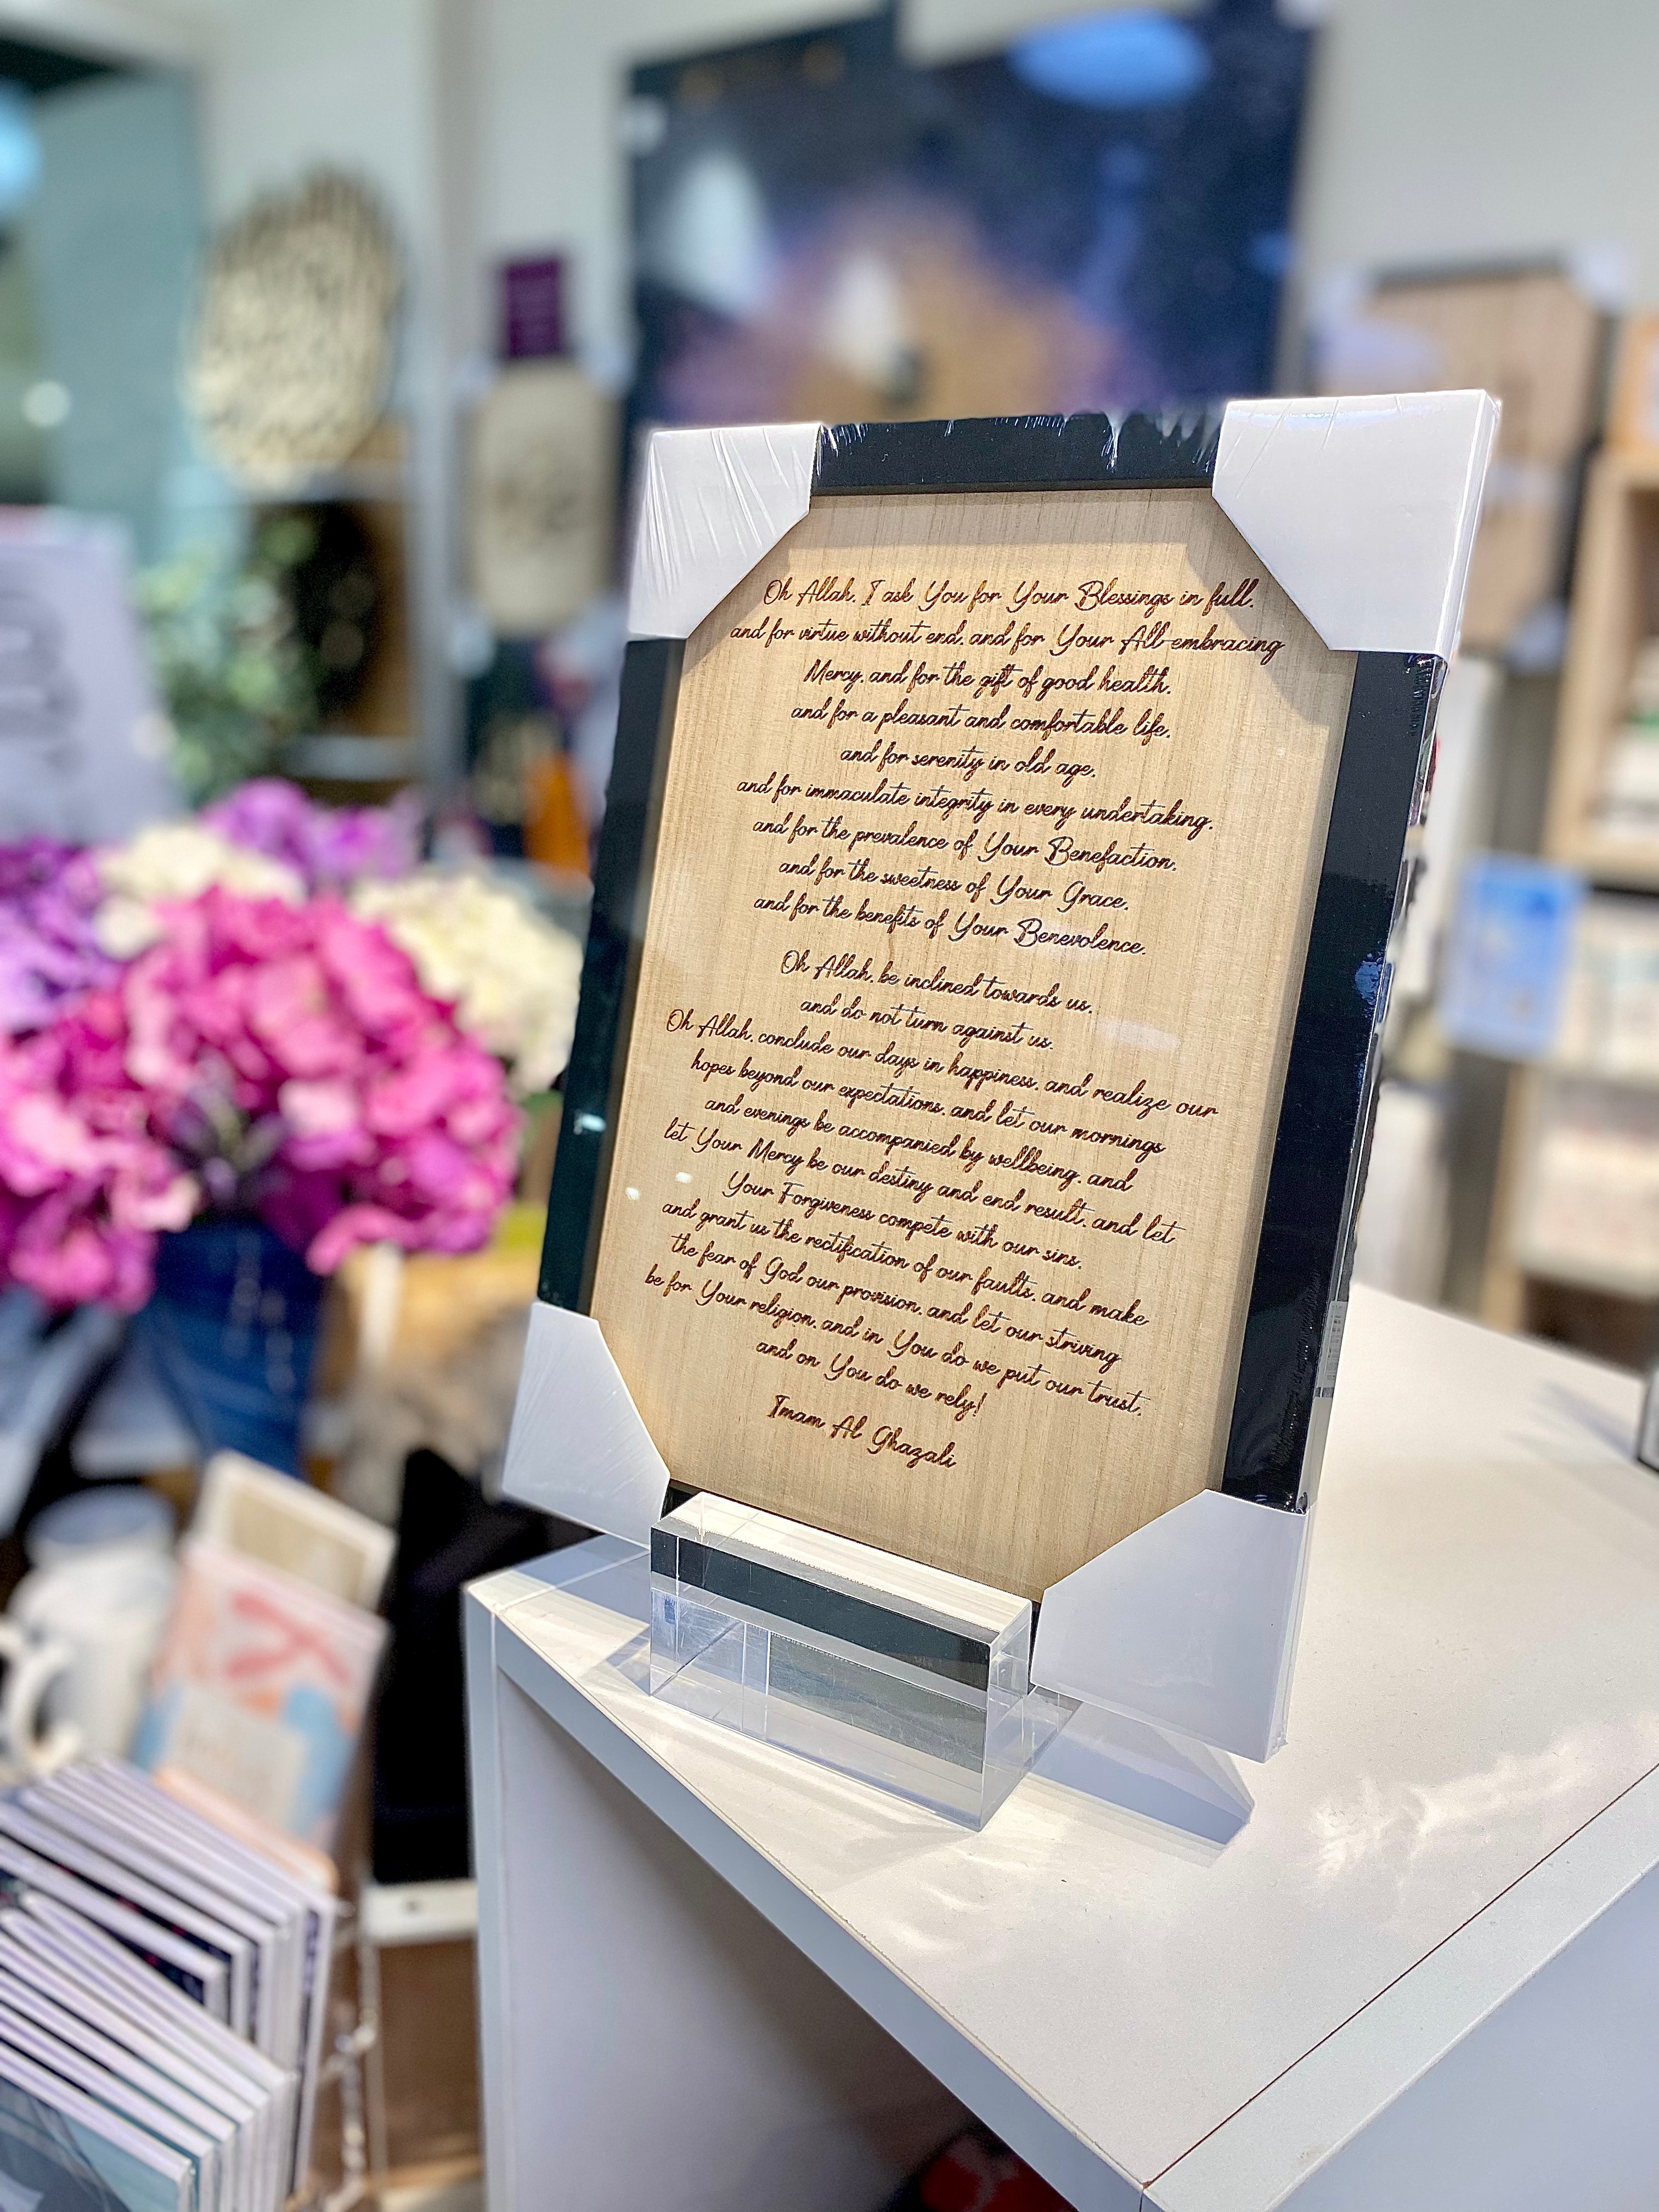 Oh Allah, I ask You for Your Blessings in full,
and for virtue without end, and for Your All-embracing
Mercy, and for the gift of good health,
and for a pleasant and comfortable life,
and for serenity in old age,
and for immaculate integrity in every undertaking,
and for the prevalence of Your Benefaction,
and for the sweetness of Your Grace,
and for the benefits of Your Benevolence.
Oh Allah, be inclined towards us,
and do not turn against us.
Oh Allah, conclude our days in happiness, and realize our
hopes beyond our expectations, and let our mornings
and evenings be accompanied by wellbeing, and
let Your Mercy be our destiny and end result, and let
Your Forgiveness compete with our sins,
and grant us the rectification of our faults, and make
the fear of God our provision, and let our striving
be for Your religion, and in You do we put our trust,
and on You do we rely!
Imam Al Ghazali